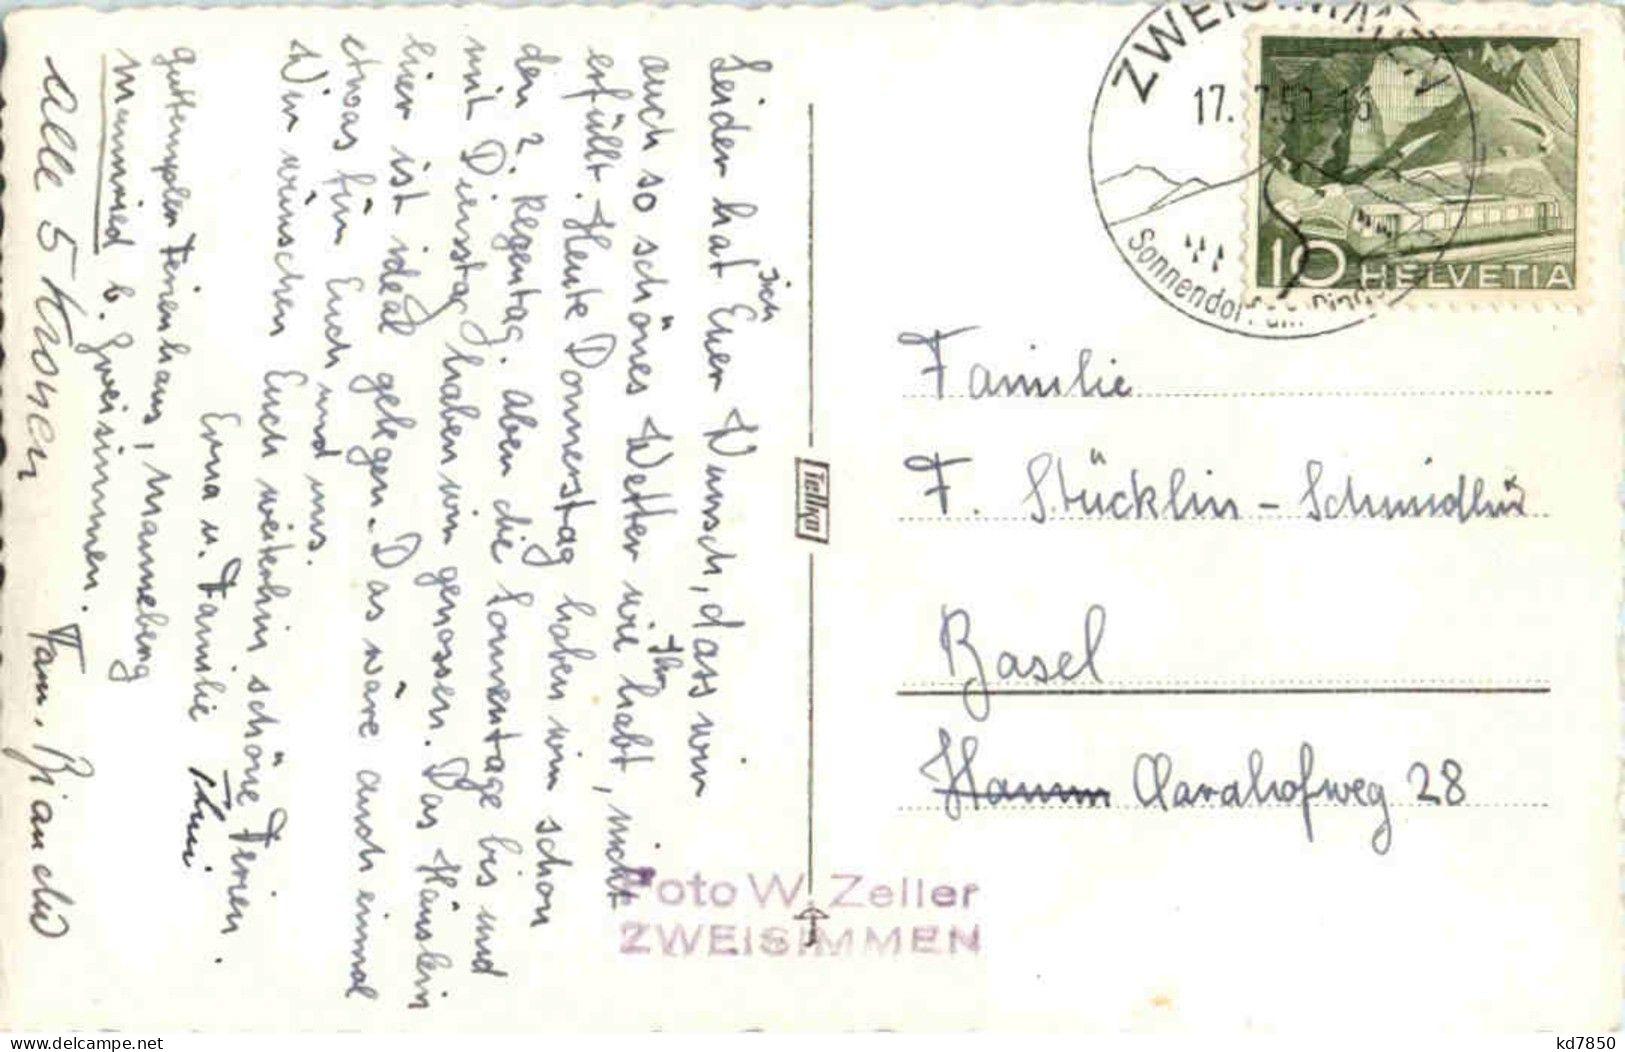 Leider hat sich Euer Wunsch, dass wir
auch so schönes Wetter wie Ihr habt, nicht
erfüllt. Heute Donnerstag haben wir schon
den 2. Regentag. Aber die Sonnentage bis und
mit Dienstag haben wir genossen. Das Häuslein
hier ist ideal gelegen. Das wäre auch einmal
etwas für Euch und uns.
Wir wünschen Euch weiterhin schöne Ferien.
Erna u. Familie
Guttempler Ferienhaus, Mannenberg
Mannried b. Zweisimmen.
Alle 5 Kronen Fam. Bianchi
Tellko
Foto W. Zeller
ZWEISIMMEN
ZWEISIMMEN
17. 7.5
Sonnendorf
10 HELVETIA
Familie
F. Stücklin - Schmidlin
Basel
Hamm Clarahofweg 28
kd7850